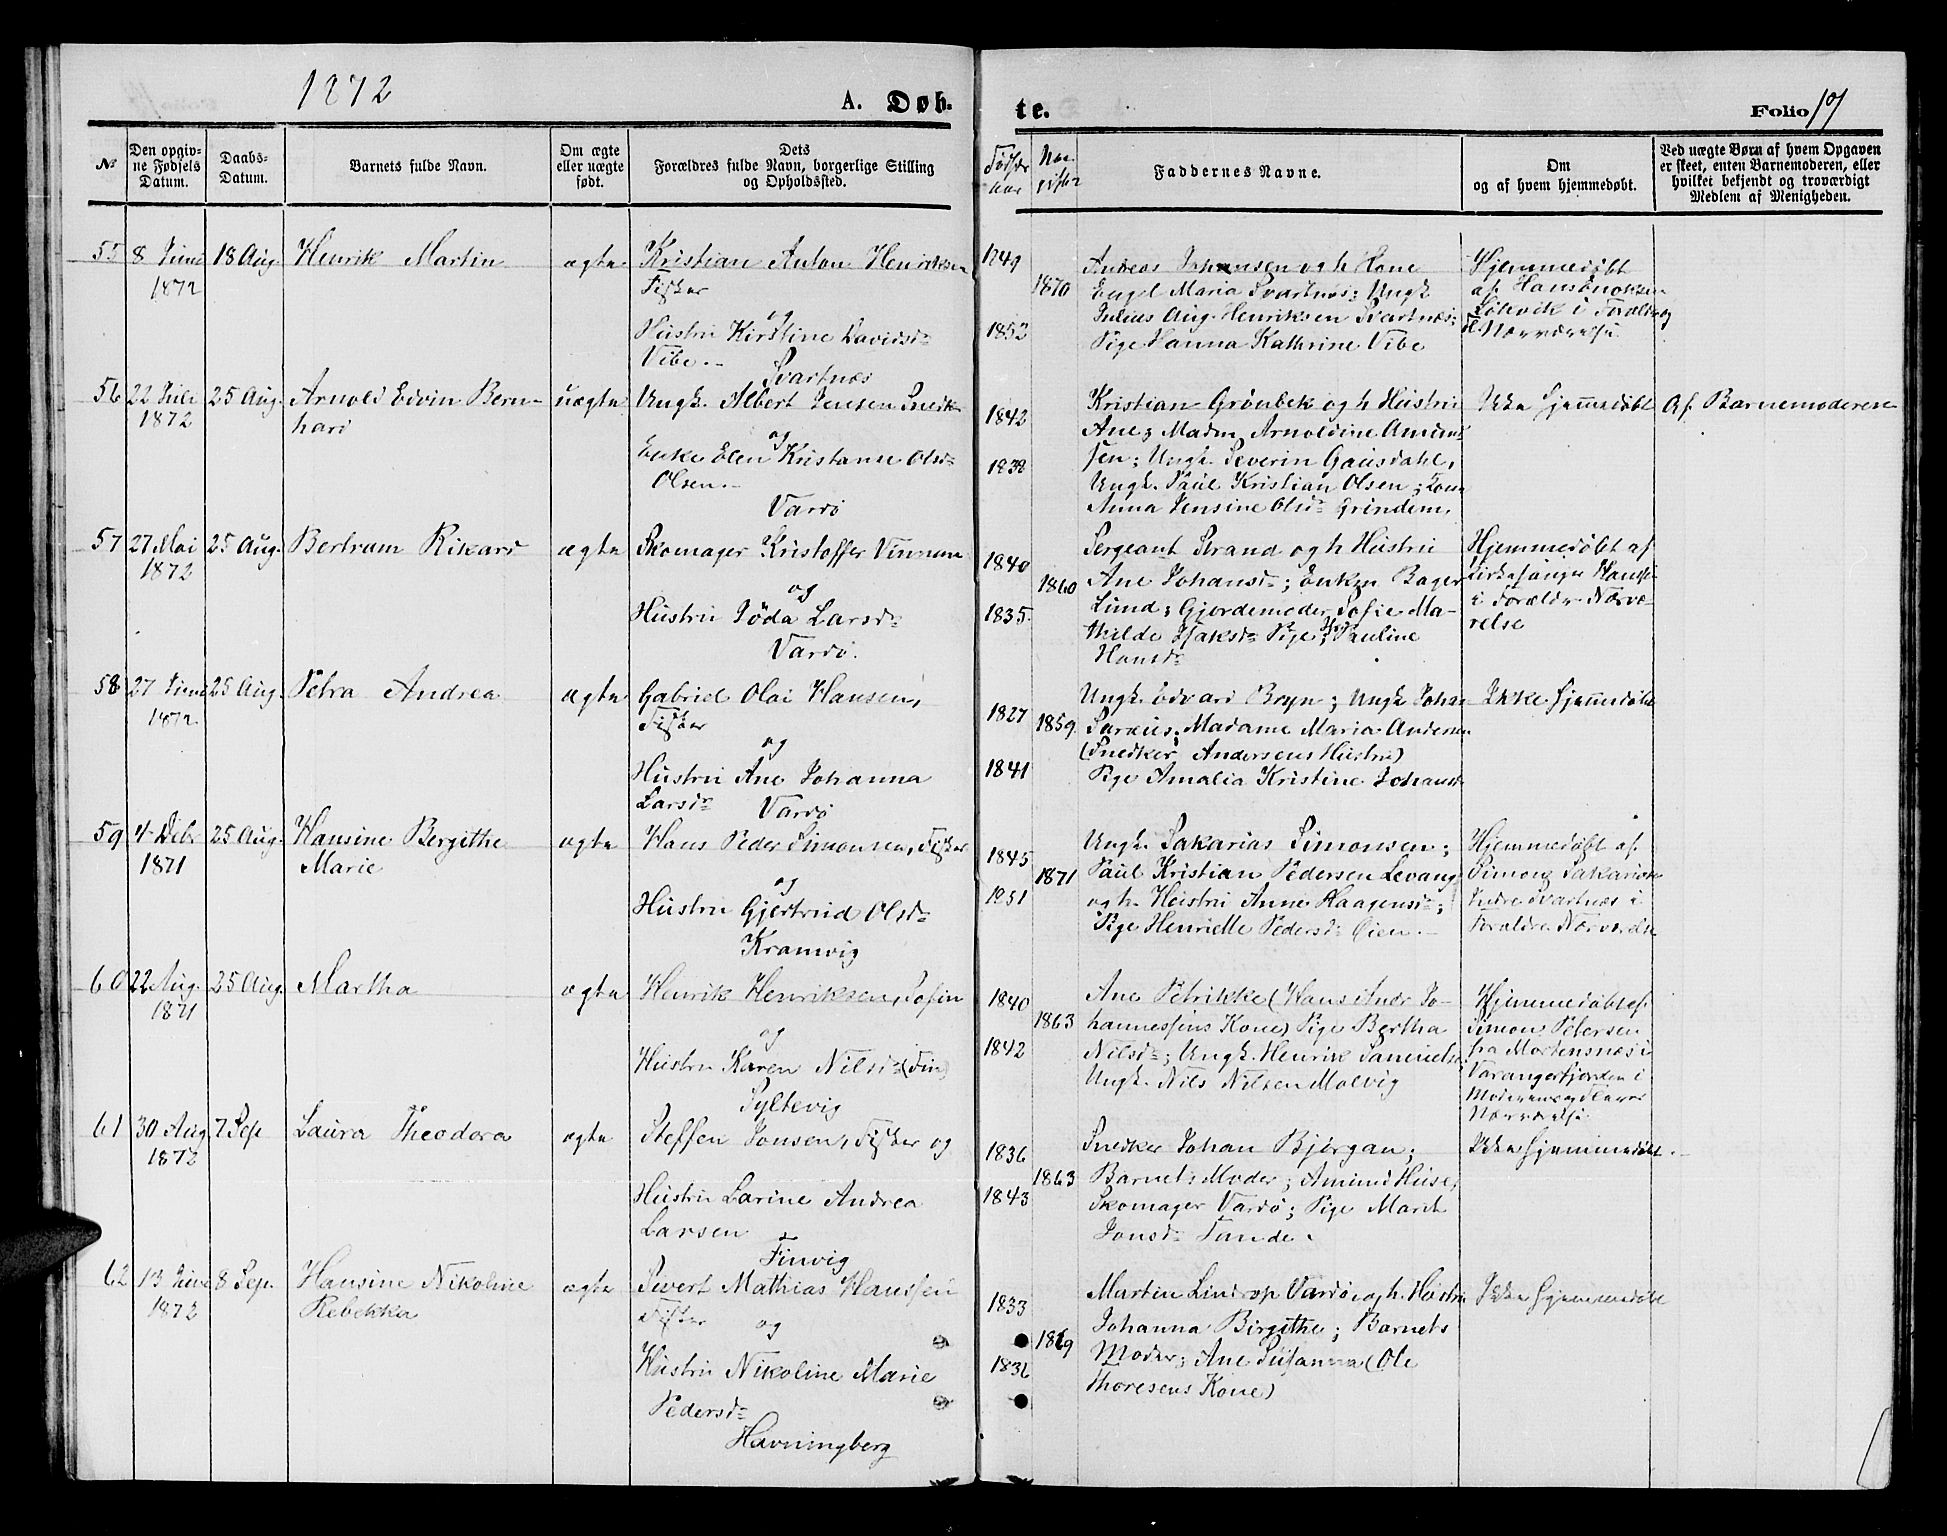 1872
A. Døb-
te.
Folio 19
№
Den opgiv-
ne Fødsels
Datum.
Daabs-
Datum.
Barnets fulde Navn.
Om ægte
eller uægte
født.
Dets
Forældres fulde Navn, borgerlige Stilling
og Opholdssted.
Fødsels
aar
Faddernes Navne.
Om
og af hvem hjemmedøbt.
Ved uægte Børn af hvem Opgaven
er skeet, enten Barnemoderen, eller
hvilket bekjendt og troværdigt
Medlem af Menigheden.
55
8 Juni
1872
18 Aug.
Henrik Martin
ægte
Kristian Anton Henriksen
Fisker
og
Hustru Kirstine Davidsd.
Vibe.
Svartnæs
1849
1870
1852
Andreas Johansen og h Kone
Engel Maria Svartnæs; Ungk.
Julius Aug. Henriksen Svartnæs;
Pige Hanna Kathrine Vibe
Hjemmedøbt
af Hans Enoksen
i Forældre
Nærværelse
56
22 Juli
1872
25 Aug.
Arnold Edvin Bern-
hard
uægte
Ungk. Albert Jensen Snedk.
og
Enke Elen Kristanne Olsd.
Olsen.
Vardö
1842
1838
Kristian Grönbek og h Hustru
Ane; Madm Arnoldine Amund
sen; Ungk. Severin Gausdahl,
Ungk. Paul Kristian Olsen; Kone
Anna Jensine Olsd. Grindem.
Ikke hjemmedøbt
Af Barnemoderen
57
27 Mai
1872
25 Aug.
Bertram Rikard
ægte
Skomager Kristoffer
og
Hustru Jöda Larsd.
Vardö.
1840
1860
1835.
Sergeant Strand og h Hustru
Ane Johansd.; Enken Bager
Lund; Gjordemoder Sofie Ma-
thilde Isaksd. Pige Pauline
Hansd.
Hjemmedøbt af
Kirkesanger Hansen
i Forældr. Nærvæ-
relse
58
27 Juni
1872
25 Aug.
Petra Andrea
ægte
Gabriel Olai Hansen,
Fisker
og
Hustru Ane Johanna
Larsd.
Vardö
1827
1859
1841
Ungk. Edvard Bryn; Ungk Johan
Madame Maria Andersen
(Snedker Andersens Hustru)
Pige Amalia Kristine Johansd.
Ikke hjemmedøbt
59
4 Debr
1871
25 Aug.
Hansine Bergithe
Marie
ægte
Hans Peder Simonsen, Fisker
og
Hustru Gjertrud Olsd.
Kramvig
1845
1871
1851
Ungk. Sakarias Simonsen;
Paul Kristian Pedersen Levang
og h. Hustru Anne Haagensd.;
Pige Henriette Pedersd. Öien.
Hjemmedøbt af
Simon Sakariasen
Indre Svartnæs i
Forældres Nærværelse
60
22 Aug.
1871
25 Aug.
Martha
ægte
Henrik Henriksen, Söfin
og
Hustru Karen Nilsd. (Fin)
Syltevig
1840
1863
1842
Ane Petrikke (Hans Andr Jo-
hannessens Kone) Pige Bertha
Nilsd.; Ungk. Henrik Samuelsen
Ungk. Nils Nilsen Molvig
Hjemmedøbt af
Simon Petersen
fra Mortensnæs i
Varangerfjorden i
Moderens og Fleres
Nærværelse
61
30 Aug.
1872
7 Sep
Laura Theodora
ægte
Steffen Jonsen, Fisker og
Hustru Larine Andrea
Larsen
Finvig
1836
1863
1843
Snedker Johan Bjørgan;
Barnets Moder; Amund Huse,
Skomager Vardö; Pige Marit
Jonsd. Tande.
Ikke hjemmedøbt.
62
13 Juni
1872
8 Sep.
Hansine Nikoline
Rebekka
ægte
Sivert Mathias Hanssen
Fisker og
Hustru Nikoline Marie
Pedersd.
Havningberg
1833
1869
1836
Martin Lindrop Vardö, og h. Hustru
Johanna Birgithe; Barnets
Moder; Ane Susanna (Ole
Thoresens Kone)
Ikke hjemmedøbt